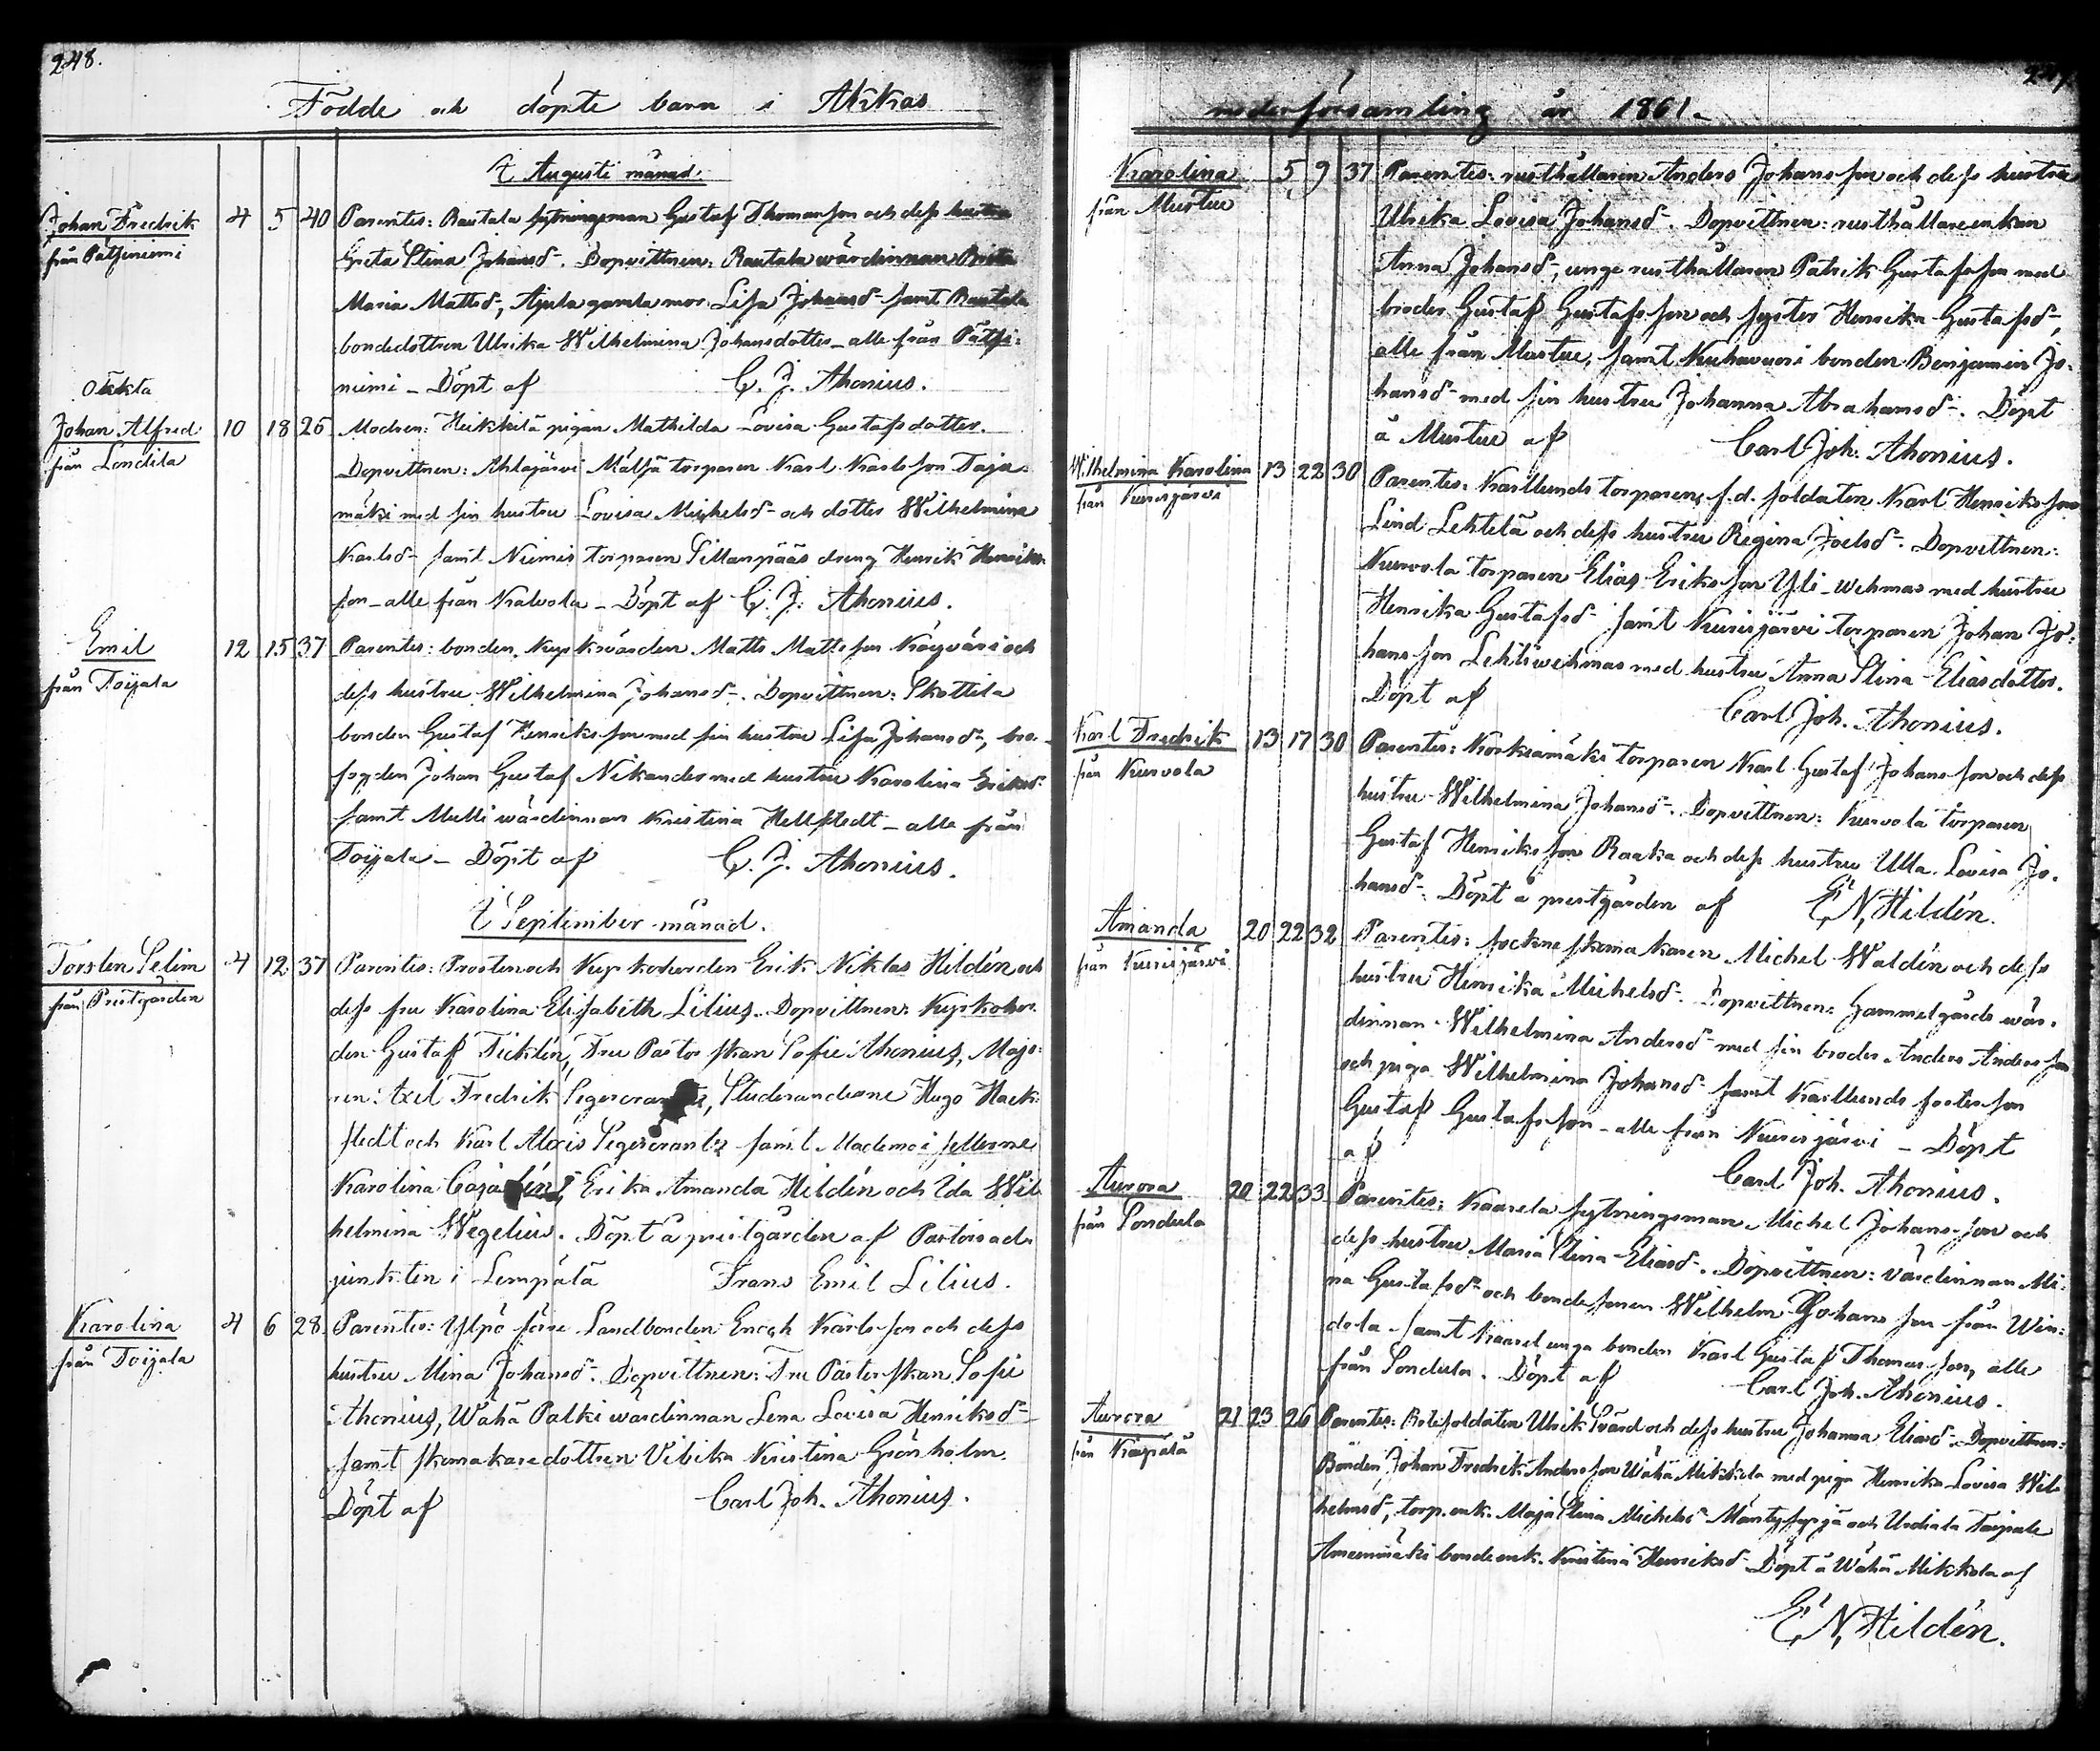 248.
Födde och döpte barn i Akkas
I Augusti månad.
Johan Fredrik
från Pätsiniemi
4 5 40 Parentes: Rautala sytningsman Gustaf Thomasson och dess hustru
Greta Stina Johansd-. Dopvittnen: Rautala wärdinnan Brita
Maria Mattsd-, Ajula gamla mor Lisa Johansd- samt Rautala
bondedottren Ulrika Wilhelmina Johansdotter - alle från Pätsi-
niemi - Döpt af C. J. Ahonius.
Oäkta
Johan Alfred
från Londila
10 18 26 Modren: Heikkilä pigan Mathilda Lovisa Gustafsdotter.
Dopvittnen: Ahlajärvi Mälsä torparen Karl Karlsson Taja-
mäki med sin hustru Lovisa Michelsd- och dotter Wilhelmina
Karlsd- samt Niemis torparen Sillanpääs dreng Henrik Henriks-
son - alle från Kalvola - Döpt af C. J. Ahonius.
Emil
från Toijala
12 15 37 Parentes: bonden, Kyrkovärden Matts Mattsson Käyväri och
dess hustru Wilhelmina Johansd-. Dopvittnen: Skottila
bonden Gustaf Henriksson med sin hustru Lisa Johansd-, bro-
fogden Johan Gustaf Nikander med hustru Karolina Eriksd-
samt Mulli wärdinnan Kristina Hellstedt - alle från
Toijala - Döpt af C. J. Ahonius.
I September månad.
Torsten Selim
från Prestgården
4 12 37 Parentes: Prosten och Kyrkoherden Erik Niklas Hildén och
dess fru Karolina Elisabeth Lilius. Dopvittnen: Kyrkoher-
den Gustaf Ticklén, Fru Pastorskan Sofie Ahonius, Majo-
ren: Axel Fredrik Segercrantz, Studerandene Hugo Hack-
stedt och Karl Alexis Segercrantz samt Mademoisellerne
Karolina Erika Amanda Hildén och Ida Wil-
helmina Wegelius. Döpt å prestgården af Pastorsad-
junkten i Lempälä Frans Emil Lilius.
Karolina
från Toijala
4 6 28 Parentes: Ylpö förre Landbonden Enoch Karlsson och dess
hustru Mina Johansd-. Dopvittnen: Fru Pastorskan Sofie
Ahonius, Wähä Palki wärdinnan Lena Lovisa Henriksd-
samt skomakaredottren Vibika Kristina Grönholm.
Döpt af Carl Joh. Ahonius.
moderförsamling år 1861.
Karolina
från Mustue
5 9 37 Parentes: rusthållaren Anders Johansson och dess hustru
Ulrika Lovisa Johansd-. Dopvittnen: rusthållareenkan
Anna Johansd-, unge rusthållaren Patrik Gustafsson med
broder Gustaf Gustafsson och syster Henrika Gustafsd-,
alle från Mustue, samt Kuhavuori bonden Benjamin Jo-
hansd- med sin hustru Johanna Abrahamsd-. Döpt
å Mustue af Carl Joh. Ahonius.
Wilhelmina Karolina
från Kurisjärvi
13 22 30 Parentes: Karllunds torparen, f.d. soldaten Karl Henriksson
Lind Lehtelä och dess hustru Regina Joelsd-. Dopvittnen:
Kurvola torparen Elias Eriksson Yli-wehmas med hustru
Henrika Gustafsd- samt Kurisjärvi torparen Johan Jo-
hansson Lehtiwehmas med hustru Anna Stina Eliasdotter.
Döpt af Carl Joh. Ahonius.
Karl Fredrik
från Kurvola
13 17 30 Parentes: Korkiamäki torparen Karl Gustaf Johansson och dess
hustru Wilhelmina Johansd-. Dopvittnen: Kurvola torparen
Gustaf Henriksson Raaka och dess hustru Ulla Lovisa Jo-
hansd-. Döpt å prestgården af E. N. Hildén.
Amanda
från Kurisjärvi
20 22 32 Parentes: sockneskomakaren Michel Waldén och dess
hustru Henrika Michelsd-. Dopvittnen: Gammelgårds wär-
dinnan Wilhelmina Andersd- med sin broder Anders Andersson
och piga Wilhelmina Johansd- samt Karllunds fosterson
Gustaf Gustafsson - alle från Kurisjärvi - Döpt
af Carl Joh. Ahonius.
Aurora
från Sondula
20 22 33 Parentes: Kaarela sytningsman Michel Johansson och
dess hustru Maria Stina Eliasd-. Dopvittnen: värdinnan Mi-
na Gustafsd- och bondesonen Wilhelm Johansson från Win-
dala samt Kaarel unga bonden Karl Gustaf Thomasson, alle
från Sondula. Döpt af Carl Joh. Ahonius.
Aurora
från Käpälä
21 23 26 Parentes: Rotesoldaten Ulrik Svärd och dess hustru Johanna Eliasd-. Dopvittnen:
Bonden Johan Fredrik Andersson Wähä Mikkola med piga Henrika Lovisa Wil-
helmsd-, torp.enk. Maja Stina Michelsd- Mäntysyrjä och Urdiala Taipale
bondeenk. Kristina Henriksd- Döpt å Wähä Mikkola af
E. N. Hildén.